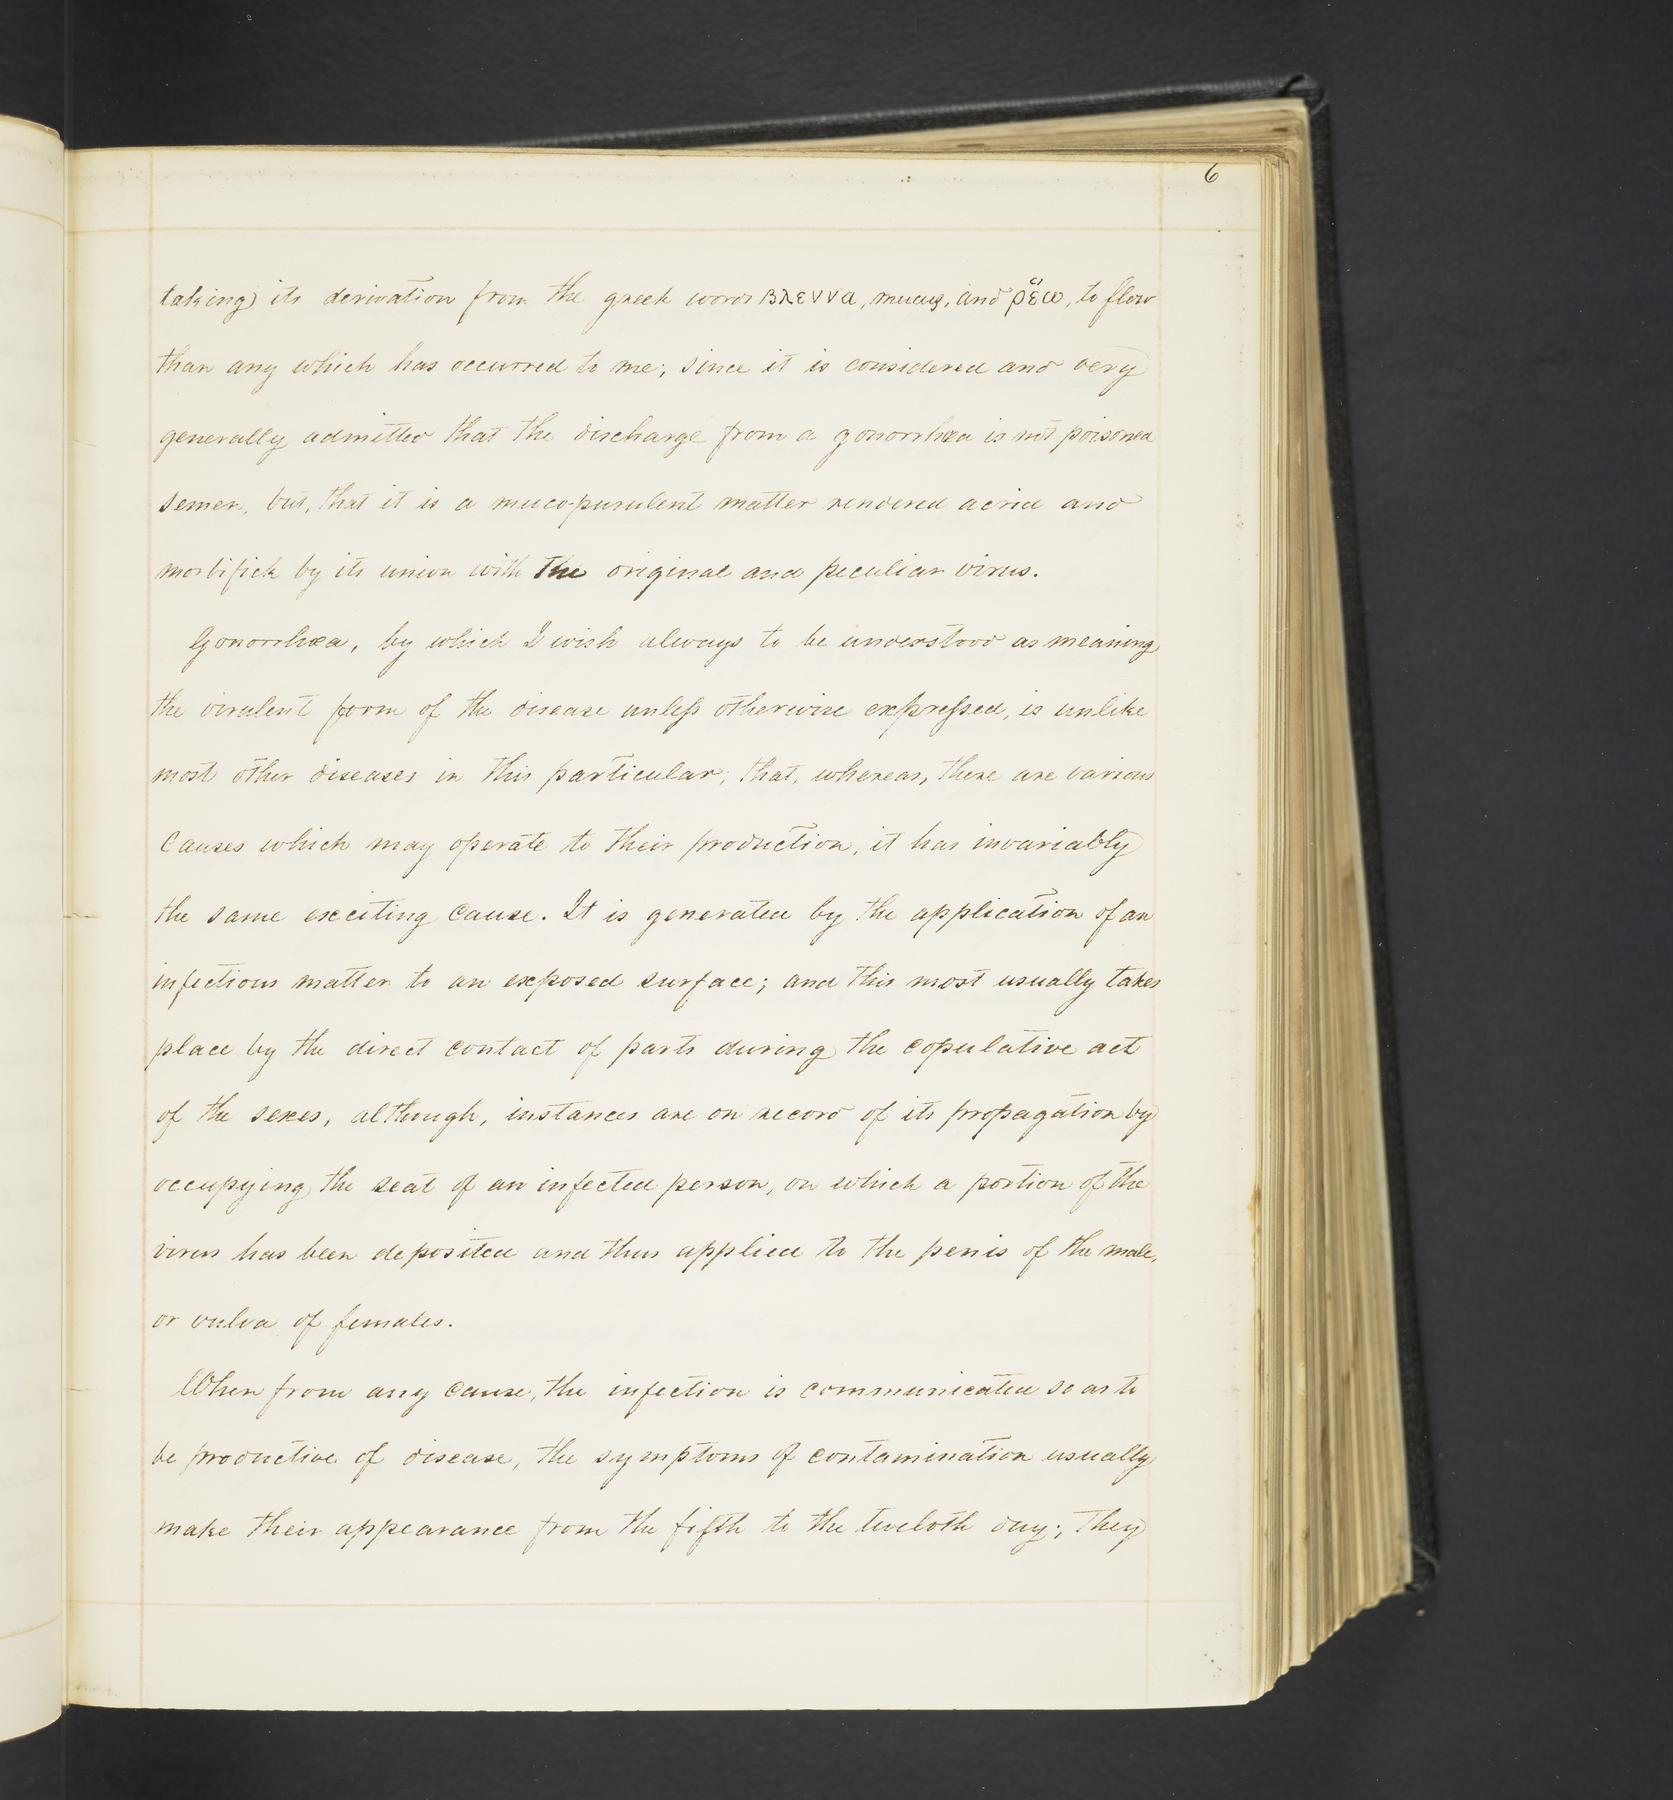 6
taking its derivation from the greek words βλεννα, mucus, and ρέω, to flow
than any which has occurred to me; since it is considered and very
generally admitted that the discharge from a gonorrhœa is not poisoned
semen, but, that it is a muco-purulent matter rendered acrid and
morbifick by its union with the original and peculiar virus.
Gonorrhœa, by which I wish always to be understood as meaning
the virulent form of the disease unless otherwise expressed, is unlike
most other diseases in this particular; that, whereas, there are various
causes which may operate to their production, it has invariably
the same exciting cause. It is generated by the application of an
infectious matter to an exposed surface; and this most usually takes
place by the direct contact of parts during the copulative act
of the sexes, although, instances are on record of its propagation by
occupying the seat of an infected person, on which a portion of the
virus has been deposited and thus applied to the penis of the male,
or vulva of females.
When from any cause, the infection is communicated so as to
be productive of disease, the symptoms of contamination usually
make their appearance from the fifth to the twelvth day; They